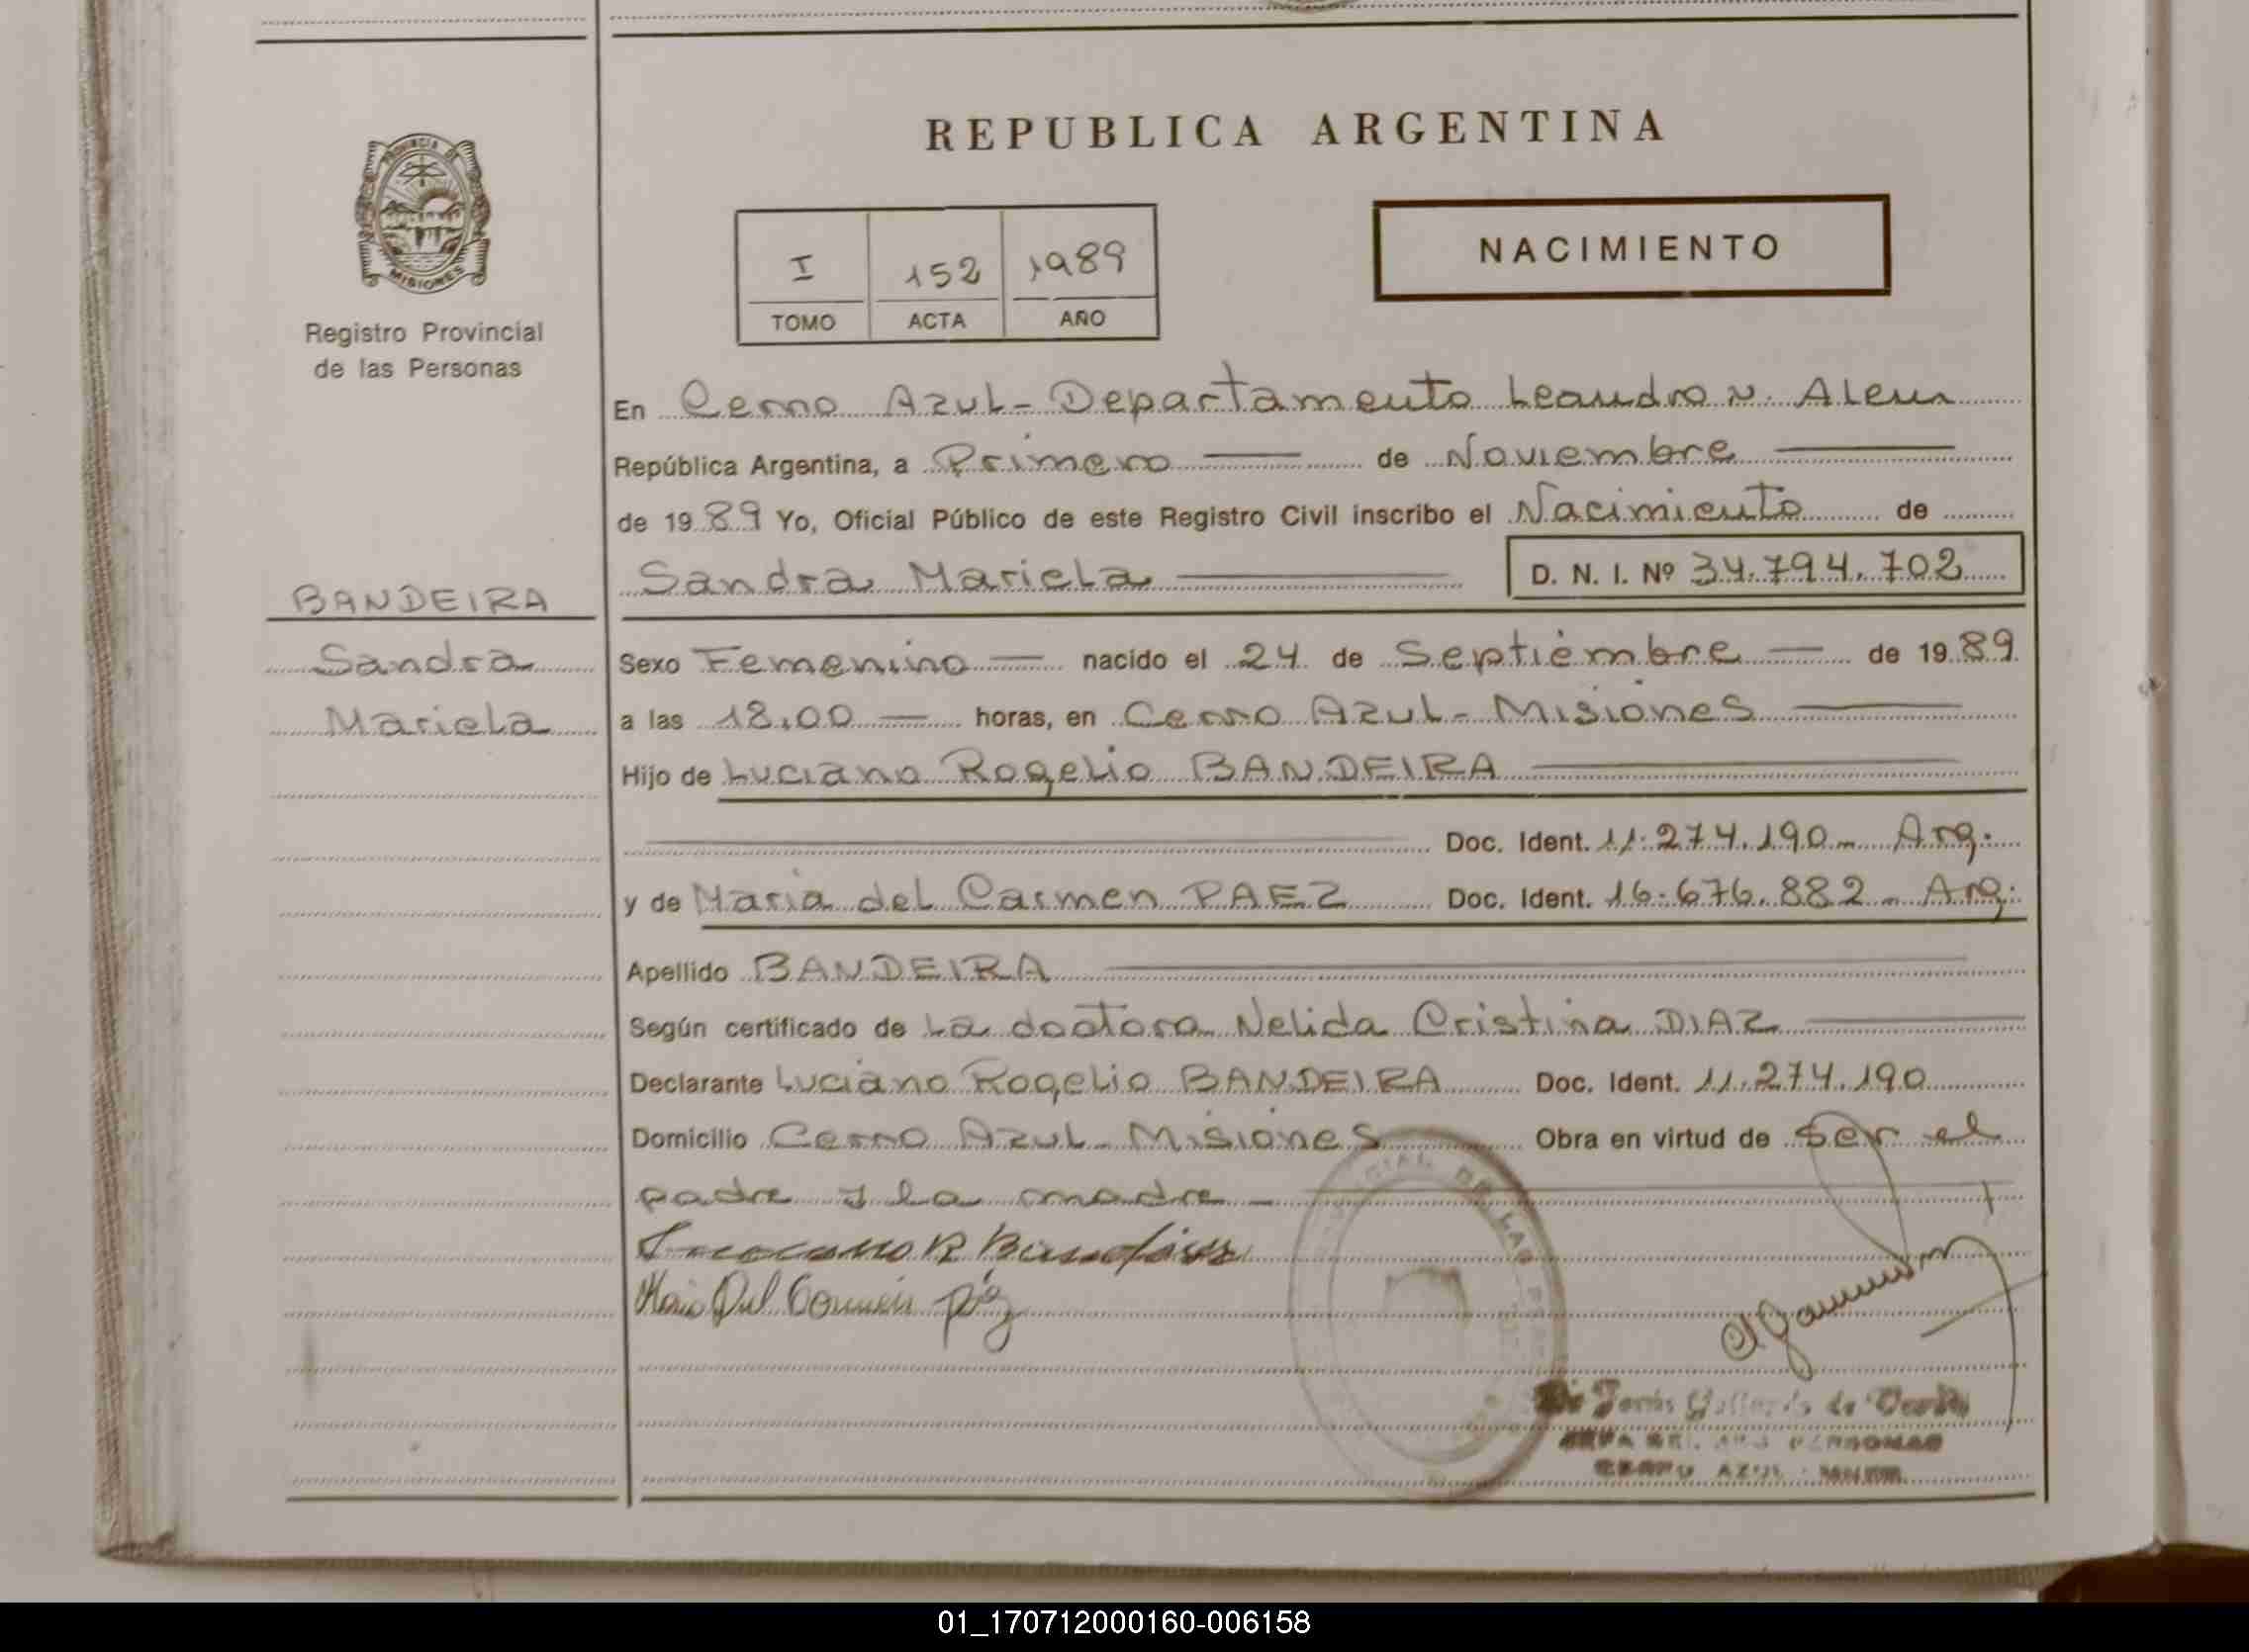 REPUBLICA ARGENTINA
PROVINCIA DE
MISIONES
Registro Provincial
de las Personas
I 152 1989
TOMO ACTA AÑO
NACIMIENTO
En Cerro Azul - Departamento Leandro N. Alem
República Argentina, a Primero de Noviembre
de 1989 Yo, Oficial Público de este Registro Civil inscribo el Nacimiento de
Sandra Mariela D. N. I. Nº 34.794.702
BANDEIRA
Sandra
Mariela
Sexo Femenino nacido el 24 de Septiembre de 1989
a las 18,00 horas, en Cerro Azul - Misiones
Hijo de Luciano Rogelio BANDEIRA
Doc. Ident. 11.274.190 - Arg.
y de Maria del Carmen PAEZ Doc. Ident. 16.676.882 - Arg.
Apellido BANDEIRA
Según certificado de La doctora Nelida Cristina DIAZ
Declarante Luciano Rogelio BANDEIRA Doc. Ident. 11.274.190
Domicilio Cerro Azul - Misiones Obra en virtud de Ser el
padre y la madre -
Luciano R Bandeira
Maria Del Carmen
DE LAS
PERSONAS
CERRO AZUL
01_170712000160-006158